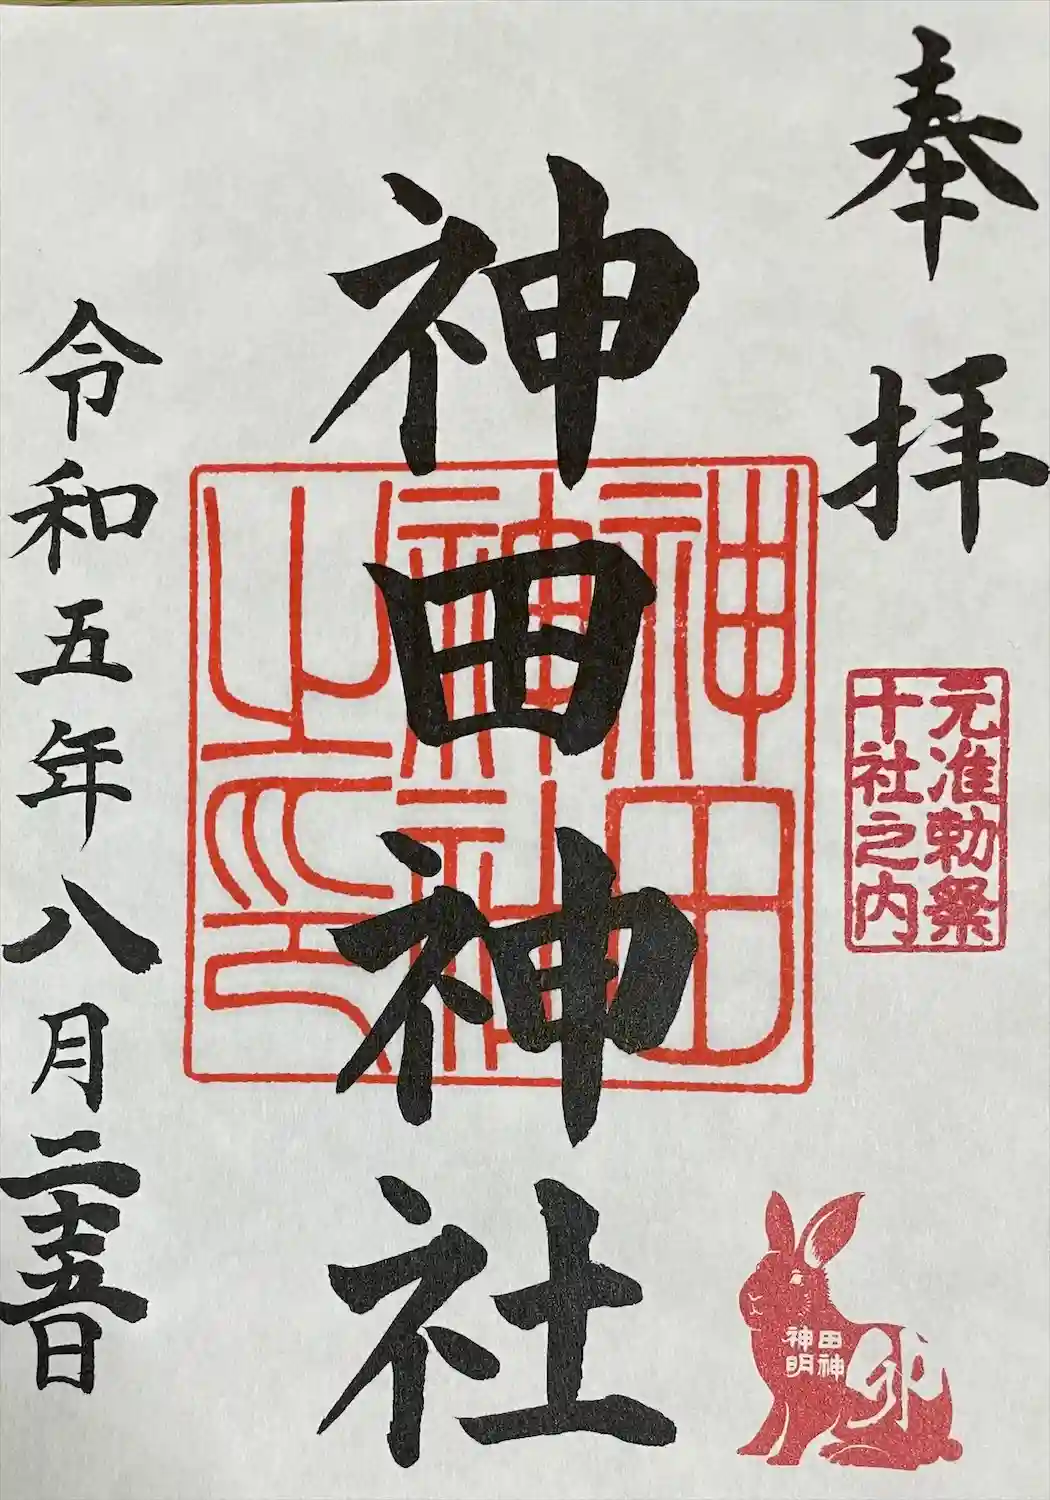 奉拝
元准勅祭
十社之内
神田神社
神田
神社
之印
令和五年八月二十五日
神田
明神
卯